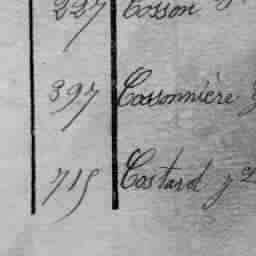 227 Cosson
397 Cossonnière
715 Costard